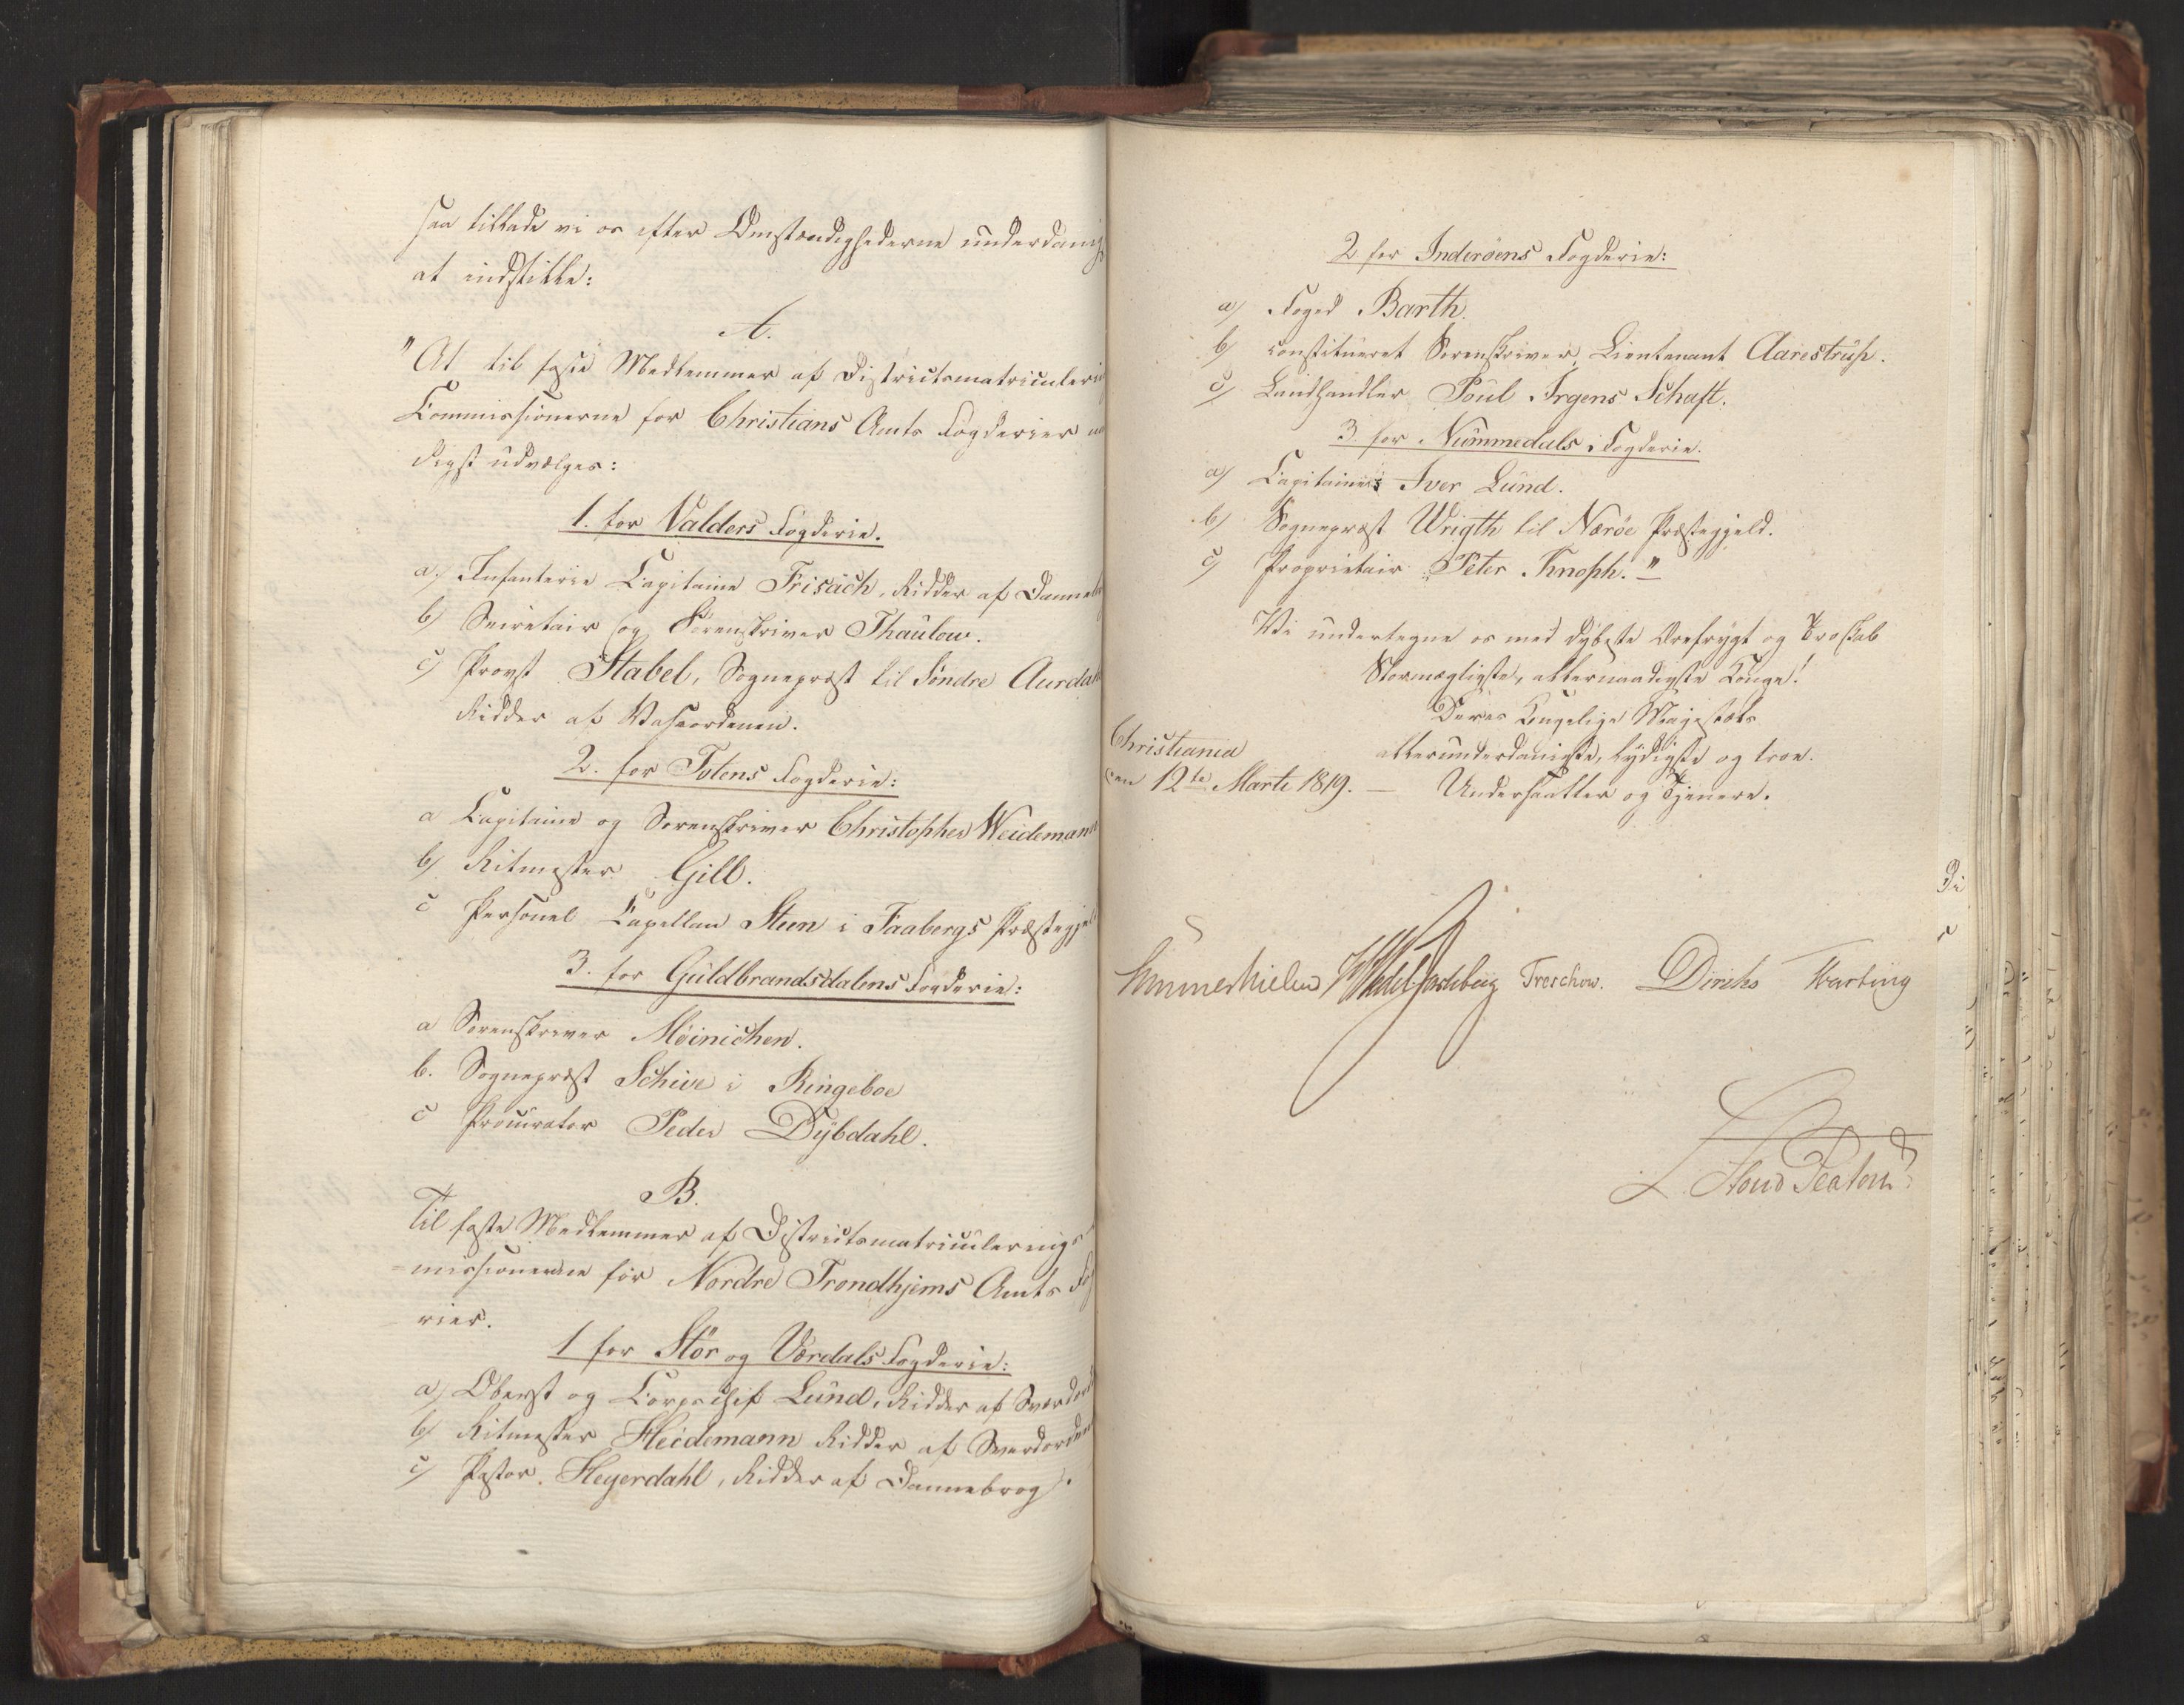 saa tillade vi os efter Omstændighederne underdanigst
at indstille:
A.
"At til faste Medlemmer af Districtsmatriculerings
Commissionerne for Christians Amts Fogderier
digst udvælges:
1. for Valders Fogderie.
a. Infanterie Capitaine Frisach, Ridder af Dannebr
b) Secretair og Sorenskriver Thaulow.
c) Provst Stabel, Sognepræst til Søndre Aurdal
Ridder af Vasaordenen.
2. for Totens Fogderie:
a Capitaine og Sorenskriver Christopher Weidemann
b) Ritmester Gill.
c Personel Capellan Steen i Faabergs Præstegje
3. for Guldbrandsdalens Fogderie:
a Sorenskriver Møinichen.
b. Sognepræst Schive i Ringeboe
c Procurator Peder Dybdahl.
B.
Til faste Medlemmer af Districtsmatriculerings
=missionerne for Nordre Trondhjems Amts Fog
rier.
1 for Stør og Værdals Fogderie:
a) Oberst og Corpschef Lund, Ridder af Sværdord
b) Ritmester Heidemann Ridder af Sværdorden
c) Pastor Heyerdahl, Ridder af Dannebrog.
2 for Inderøens Fogderie:
a) Foged Barth.
b) constitueret Sorenskriver, Lieutenant Aarestrup.
c) Landhandler Poul Irgens Schaft.
3. for Nummedals Fogderie.
a) Capitaine Iver Lund.
b) Sognepræst Wrigth til Nærøe Præstegjeld.
c) Proprietair Peter Knoph."
Vi undertegne os med dybeste Ærefrygt og Troskab
Stormægtigste, allernaadigste Konge!
Deres Kongelige Majestæts
Christiania allerunderdanigste, lydigste og troe
den 12te Marti 1819. — Undersaatter og Tjenere.
Sommerhielm Wedel Jarlsberg Treschow. Diriks